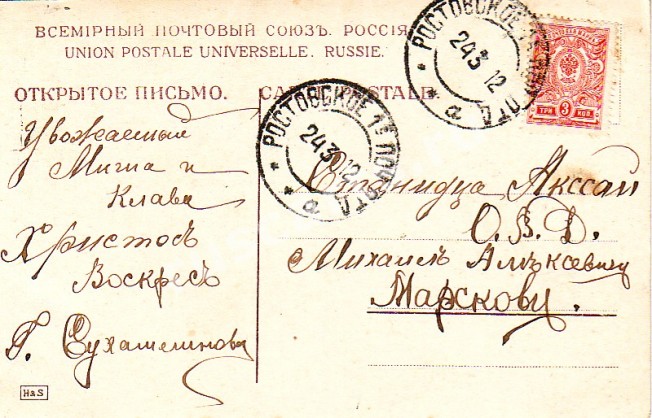 ВСЕМІРНЫЙ ПОЧТОВЫЙ СОЮЗЪ. РОССІЯ
UNION POSTALE UNIVERSELLE. RUSSIE.
ОТКРЫТОЕ ПИСЬМО. CARTE POSTALE.
РОСТОВСКОЕ 1Е ПОЧ. ОТД.
24 3 12
а
РОСТОВСКОЕ 1Е ПОЧ. ОТД.
24 3 12
а
ТРИ 3 КОП.
Уважаемый
Миша и
Клава
Христосъ
Воскресъ
Г.
Станица Аксай
О. В. Д.
Михаилъ Алъксевичу
Марскову.
H&S